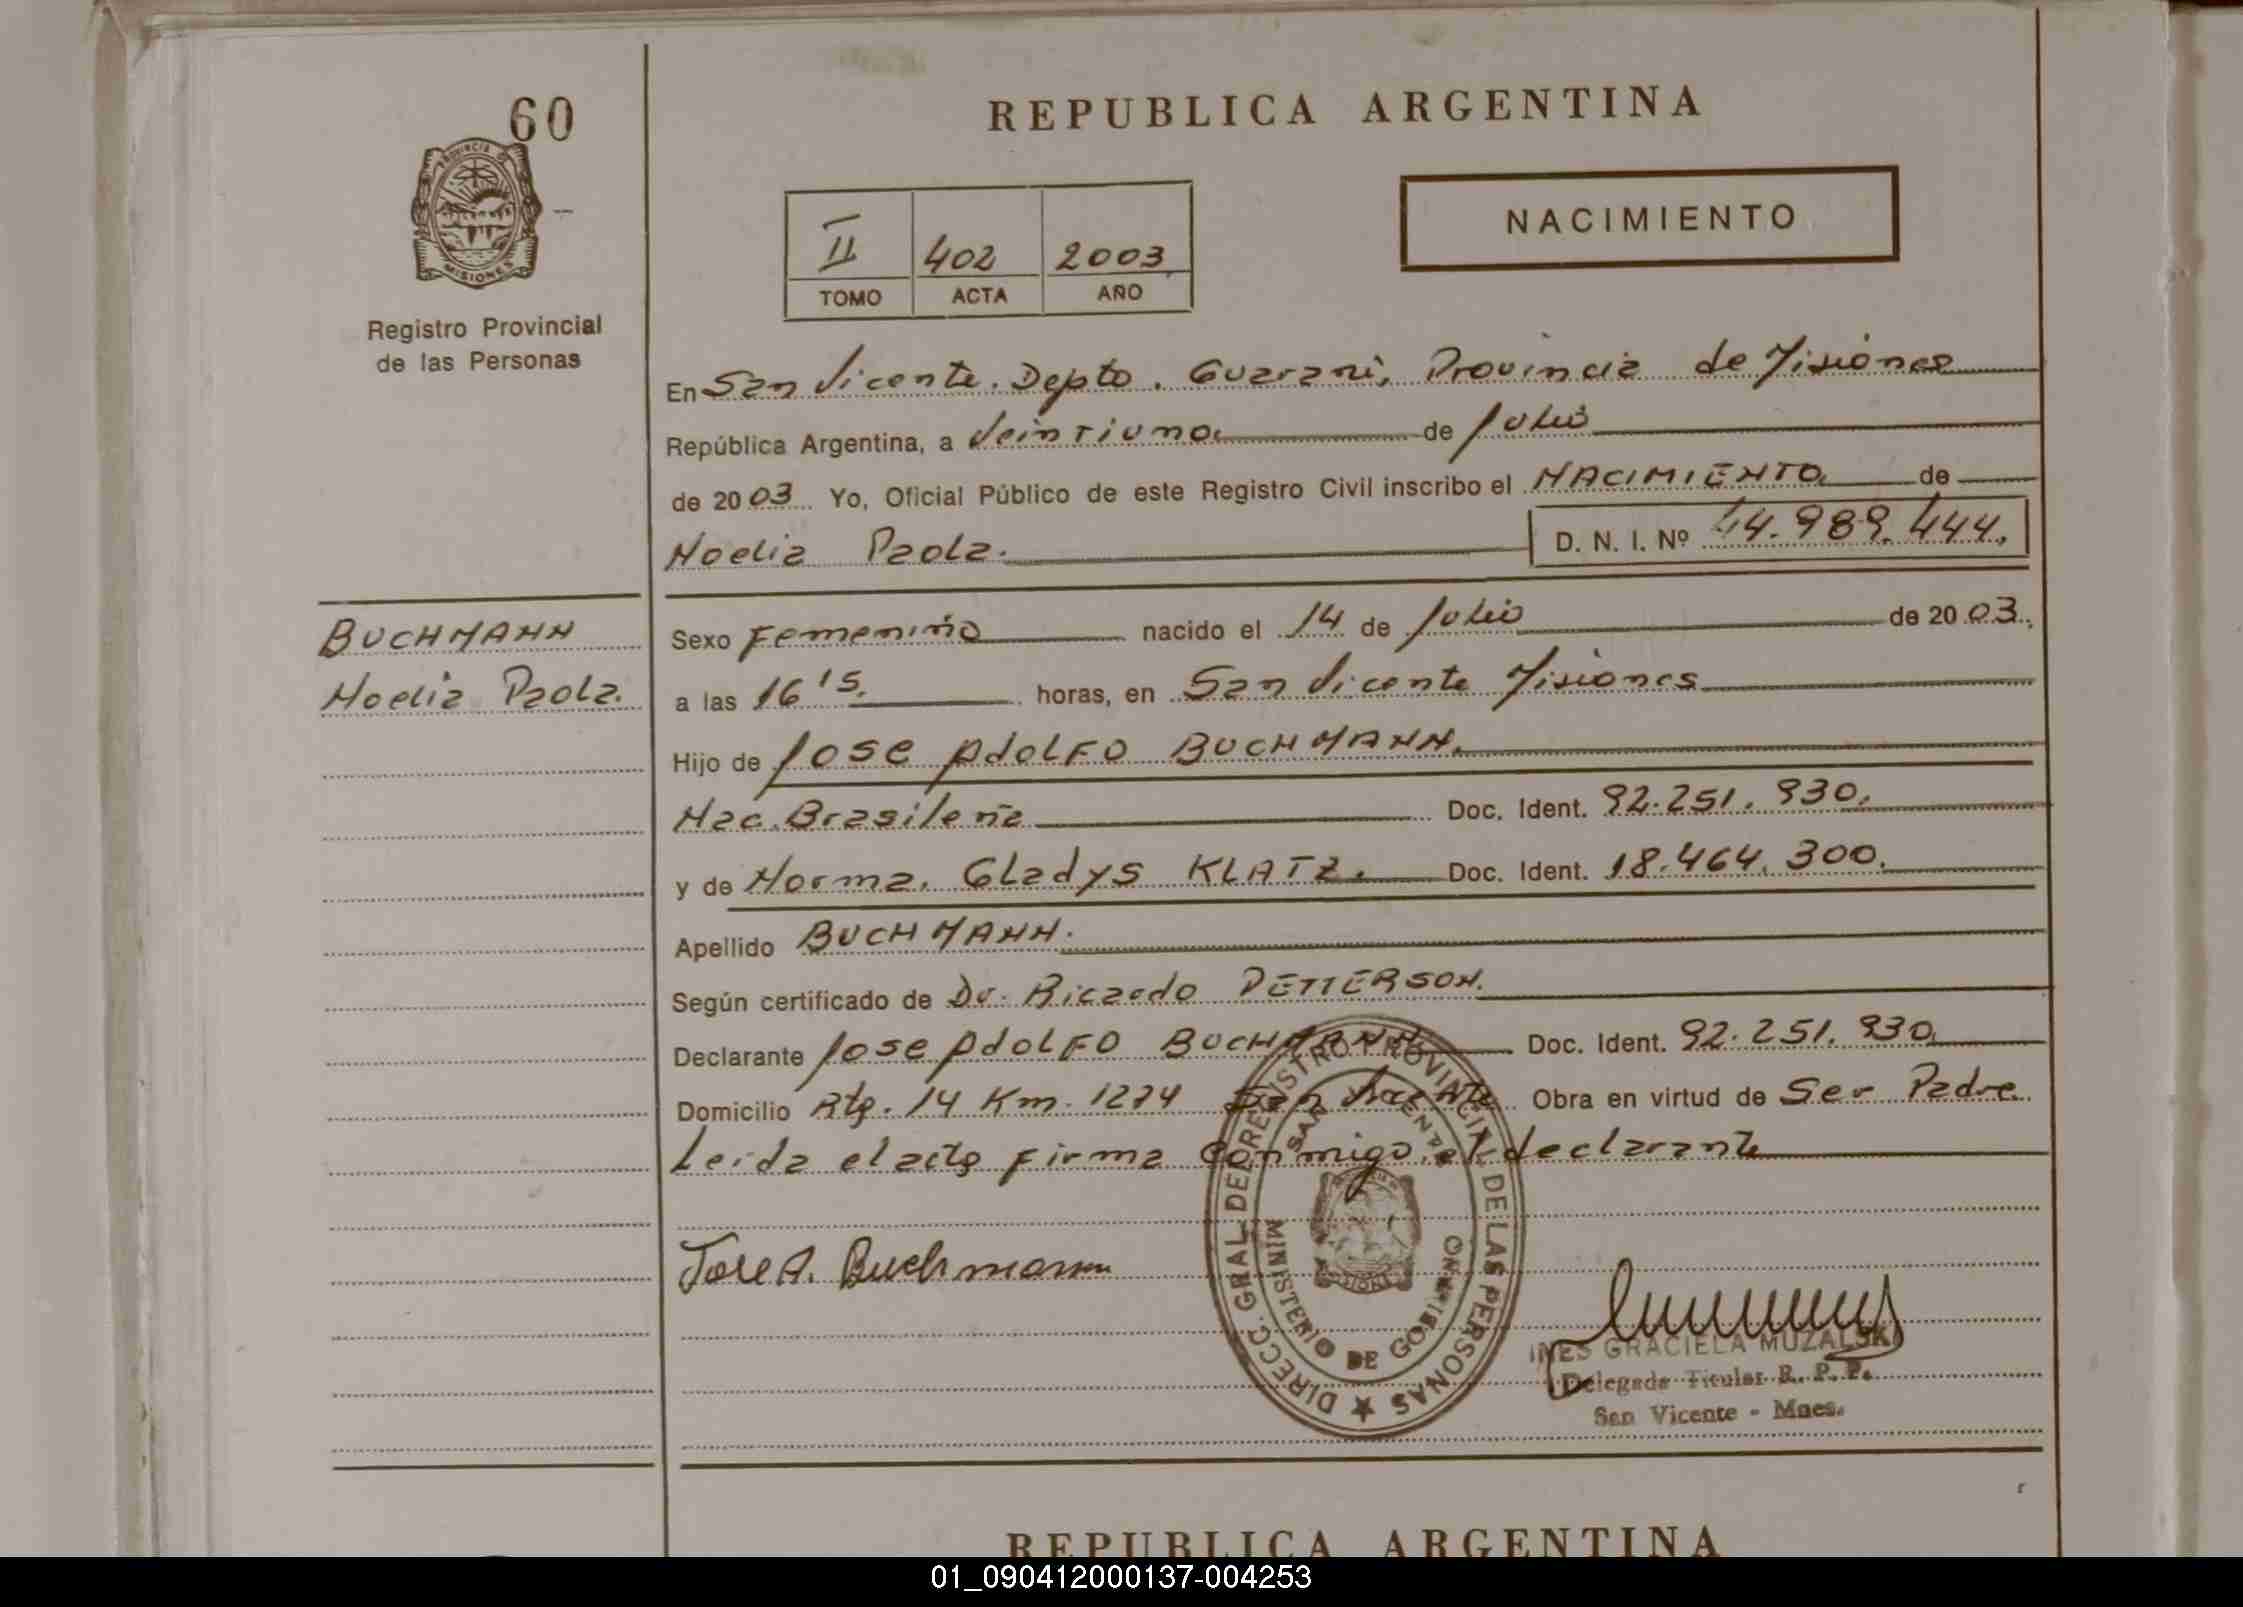 60
PROVINCIA DE
MISIONES
Registro Provincial
de las Personas
REPUBLICA ARGENTINA
II 402 2003
TOMO ACTA AÑO
NACIMIENTO
En San Vicente. Depto. Guaraní, Provincia de Misiones
República Argentina, a Veintiuno de Julio
de 2003 Yo, Oficial Público de este Registro Civil inscribo el NACIMIENTO de
Noelia Paola. D. N. I. Nº 44.989.444.
BUCHMANN
Noelia Paola.
Sexo Femenino nacido el 14 de Julio de 2003.
a las 16 15. horas, en San Vicente Misiones
Hijo de Jose Adolfo BUCHMANN.
Nac. Brasileña Doc. Ident. 92.251.930.
y de Norma. Gladys KLATZ. Doc. Ident. 18.464.300.
Apellido BUCHMANN.
Según certificado de Dr. Ricardo PETTERSON.
Declarante Jose Adolfo BUCHMANN Doc. Ident. 92.251.930.
Domicilio Rta. 14 Km. 1274 San Vicente Obra en virtud de Ser Padre.
Leida el acta firma conmigo el declarante
Jose A. Buchmann
DIRECC. GRAL. DEL REGISTRO PROVINCIAL DE LAS PERSONAS
SAN VICENTE
MINISTERIO DE GOBIERNO
INES GRACIELA MUZALSKI
Delegada Titular R. P. P.
San Vicente - Mnes.
REPUBLICA ARGENTINA
01_090412000137-004253